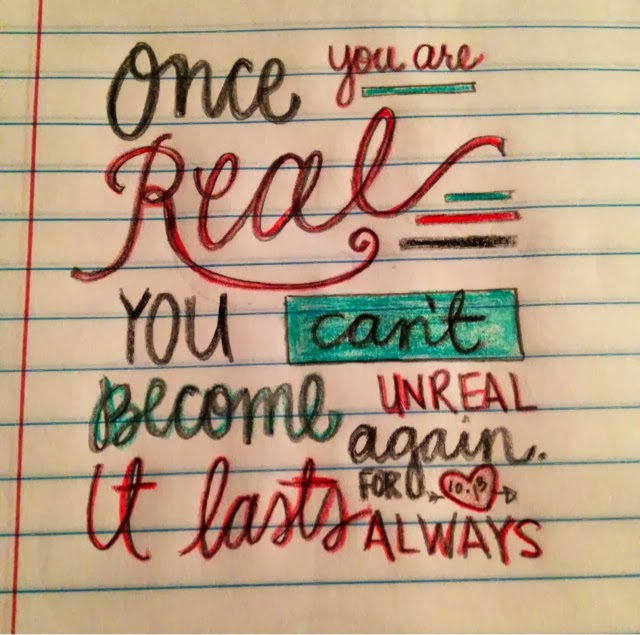 Once you are
Real
YOU can't
Become UNREAL
again.
It lasts FOR
ALWAYS